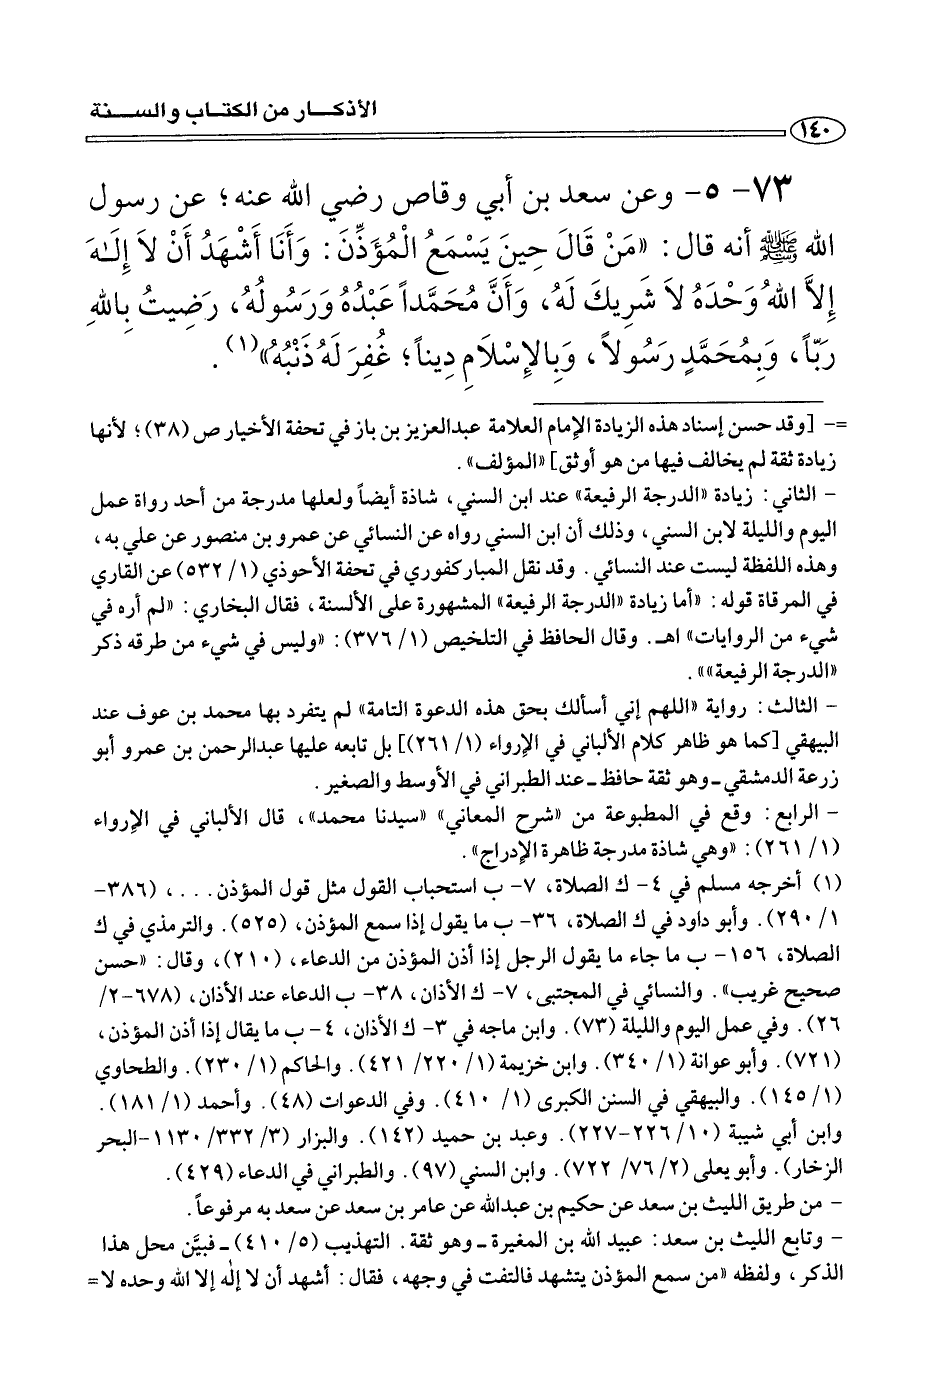 الأذكـــار من الكتـاب والســـنة
١٤٠
٧٣- ٥- وعن سعد بن أبي وقاص رضي الله عنه؛ عن رسول
الله ﷺ أنه قال: «مَنْ قَالَ حِينَ يَسْمَعُ الْمُؤَذِّنَ: وَأَنَا أَشْهَدُ أَنْ لاَ إِلَـٰهَ
إِلاَّ اللهُ وَحْدَهُ لاَ شَرِيكَ لَهُ، وَأَنَّ مُحَمَّداً عَبْدُهُ وَرَسُولُهُ، رَضِيتُ بِاللهِ
رَبّاً، وَبِمُحَمَّدٍ رَسُولاً، وَبِالإِسْلَامِ دِيناً؛ غُفِرَ لَهُ ذَنْبُهُ»(١).
=- [وقد حسن إسناد هذه الزيادة الإمام العلامة عبدالعزيز بن باز في تحفة الأخيار ص (٣٨)؛ لأنها
زيادة ثقة لم يخالف فيها من هو أوثق] «المؤلف».
- الثاني: زيادة «الدرجة الرفيعة» عند ابن السني، شاذة أيضاً ولعلها مدرجة من أحد رواة عمل
اليوم والليلة لابن السني، وذلك أن ابن السني رواه عن النسائي عن عمرو بن منصور عن علي به،
وهذه اللفظة ليست عند النسائي. وقد نقل المباركفوري في تحفة الأحوذي (١/ ٥٣٢) عن القاري
في المرقاة قوله: «أما زيادة «الدرجة الرفيعة» المشهورة على الألسنة، فقال البخاري: «لم أره في
شيء من الروايات» اهـ. وقال الحافظ في التلخيص (١/ ٣٧٦): «وليس في شيء من طرقه ذكر
«الدرجة الرفيعة»».
- الثالث: رواية «اللهم إني أسألك بحق هذه الدعوة التامة» لم يتفرد بها محمد بن عوف عند
البيهقي [كما هو ظاهر كلام الألباني في الإرواء (١/ ٢٦١)] بل تابعه عليها عبدالرحمن بن عمرو أبو
زرعة الدمشقي ـ وهو ثقة حافظ ـ عند الطبراني في الأوسط والصغير.
- الرابع: وقع في المطبوعة من «شرح المعاني» «سيدنا محمد»، قال الألباني في الإرواء
(١/ ٢٦١): «وهي شاذة مدرجة ظاهرة الإدراج».
(١) أخرجه مسلم في ٤- ك الصلاة، ٧- ب استحباب القول مثل قول المؤذن...، (٣٨٦-
١/ ٢٩٠). وأبو داود في ك الصلاة، ٣٦- ب ما يقول إذا سمع المؤذن، (٥٢٥). والترمذي في ك
الصلاة، ١٥٦- ب ما جاء ما يقول الرجل إذا أذن المؤذن من الدعاء، (٢١٠)، وقال: «حسن
صحيح غريب». والنسائي في المجتبى، ٧- ك الأذان، ٣٨- ب الدعاء عند الأذان، (٦٧٨-٢/
٢٦). وفي عمل اليوم والليلة (٧٣). وابن ماجه في ٣- ك الأذان، ٤- ب ما يقال إذا أذن المؤذن،
(٧٢١). وأبو عوانة (١/ ٣٤٠). وابن خزيمة (١/ ٢٢٠/ ٤٢١). والحاكم (١/ ٢٣٠). والطحاوي
(١/ ١٤٥). والبيهقي في السنن الكبرى (١/ ٤١٠). وفي الدعوات (٤٨). وأحمد (١/ ١٨١).
وابن أبي شيبة (١٠/ ٢٢٦-٢٢٧). وعبد بن حميد (١٤٢). والبزار (٣/ ٣٣٢/ ١١٣٠-البحر
الزخار). وأبو يعلى (٢/ ٧٦/ ٧٢٢). وابن السني (٩٧). والطبراني في الدعاء (٤٢٩).
- من طريق الليث بن سعد عن حكيم بن عبدالله عن عامر بن سعد عن سعد به مرفوعاً.
- وتابع الليث بن سعد: عبيد الله بن المغيرة ـ وهو ثقة. التهذيب (٥/ ٤١٠) ـ فبيَّن محل هذا
الذكر، ولفظه «من سمع المؤذن يتشهد فالتفت في وجهه، فقال: أشهد أن لا إلٰه إلا الله وحده لا=